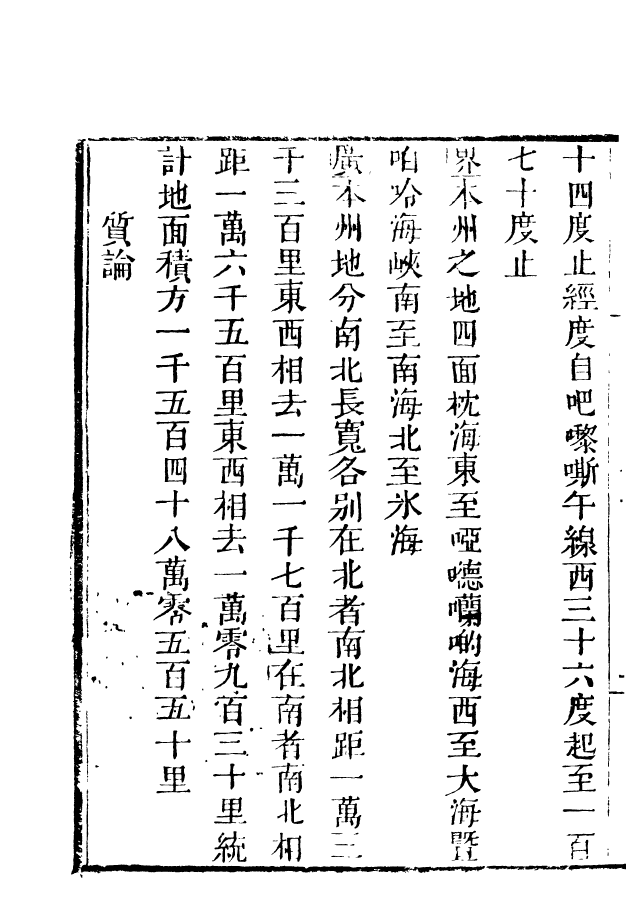 十四度止經度自吧嚟嘶午線西三十六度起至一百
七十度止
界本州之地四面枕海東至啞㗂囒啲海西至大海曁
咱哈海峽南至南海北至氷海
廣本州地分南北長寬各别在北者南北相距一萬三
千三百里東西相去一萬一千七百里在南者南北相
距一萬六千五百里東西相去一萬零九百三十里統
計地面積方一千五百四十八萬零五百五十里
質論